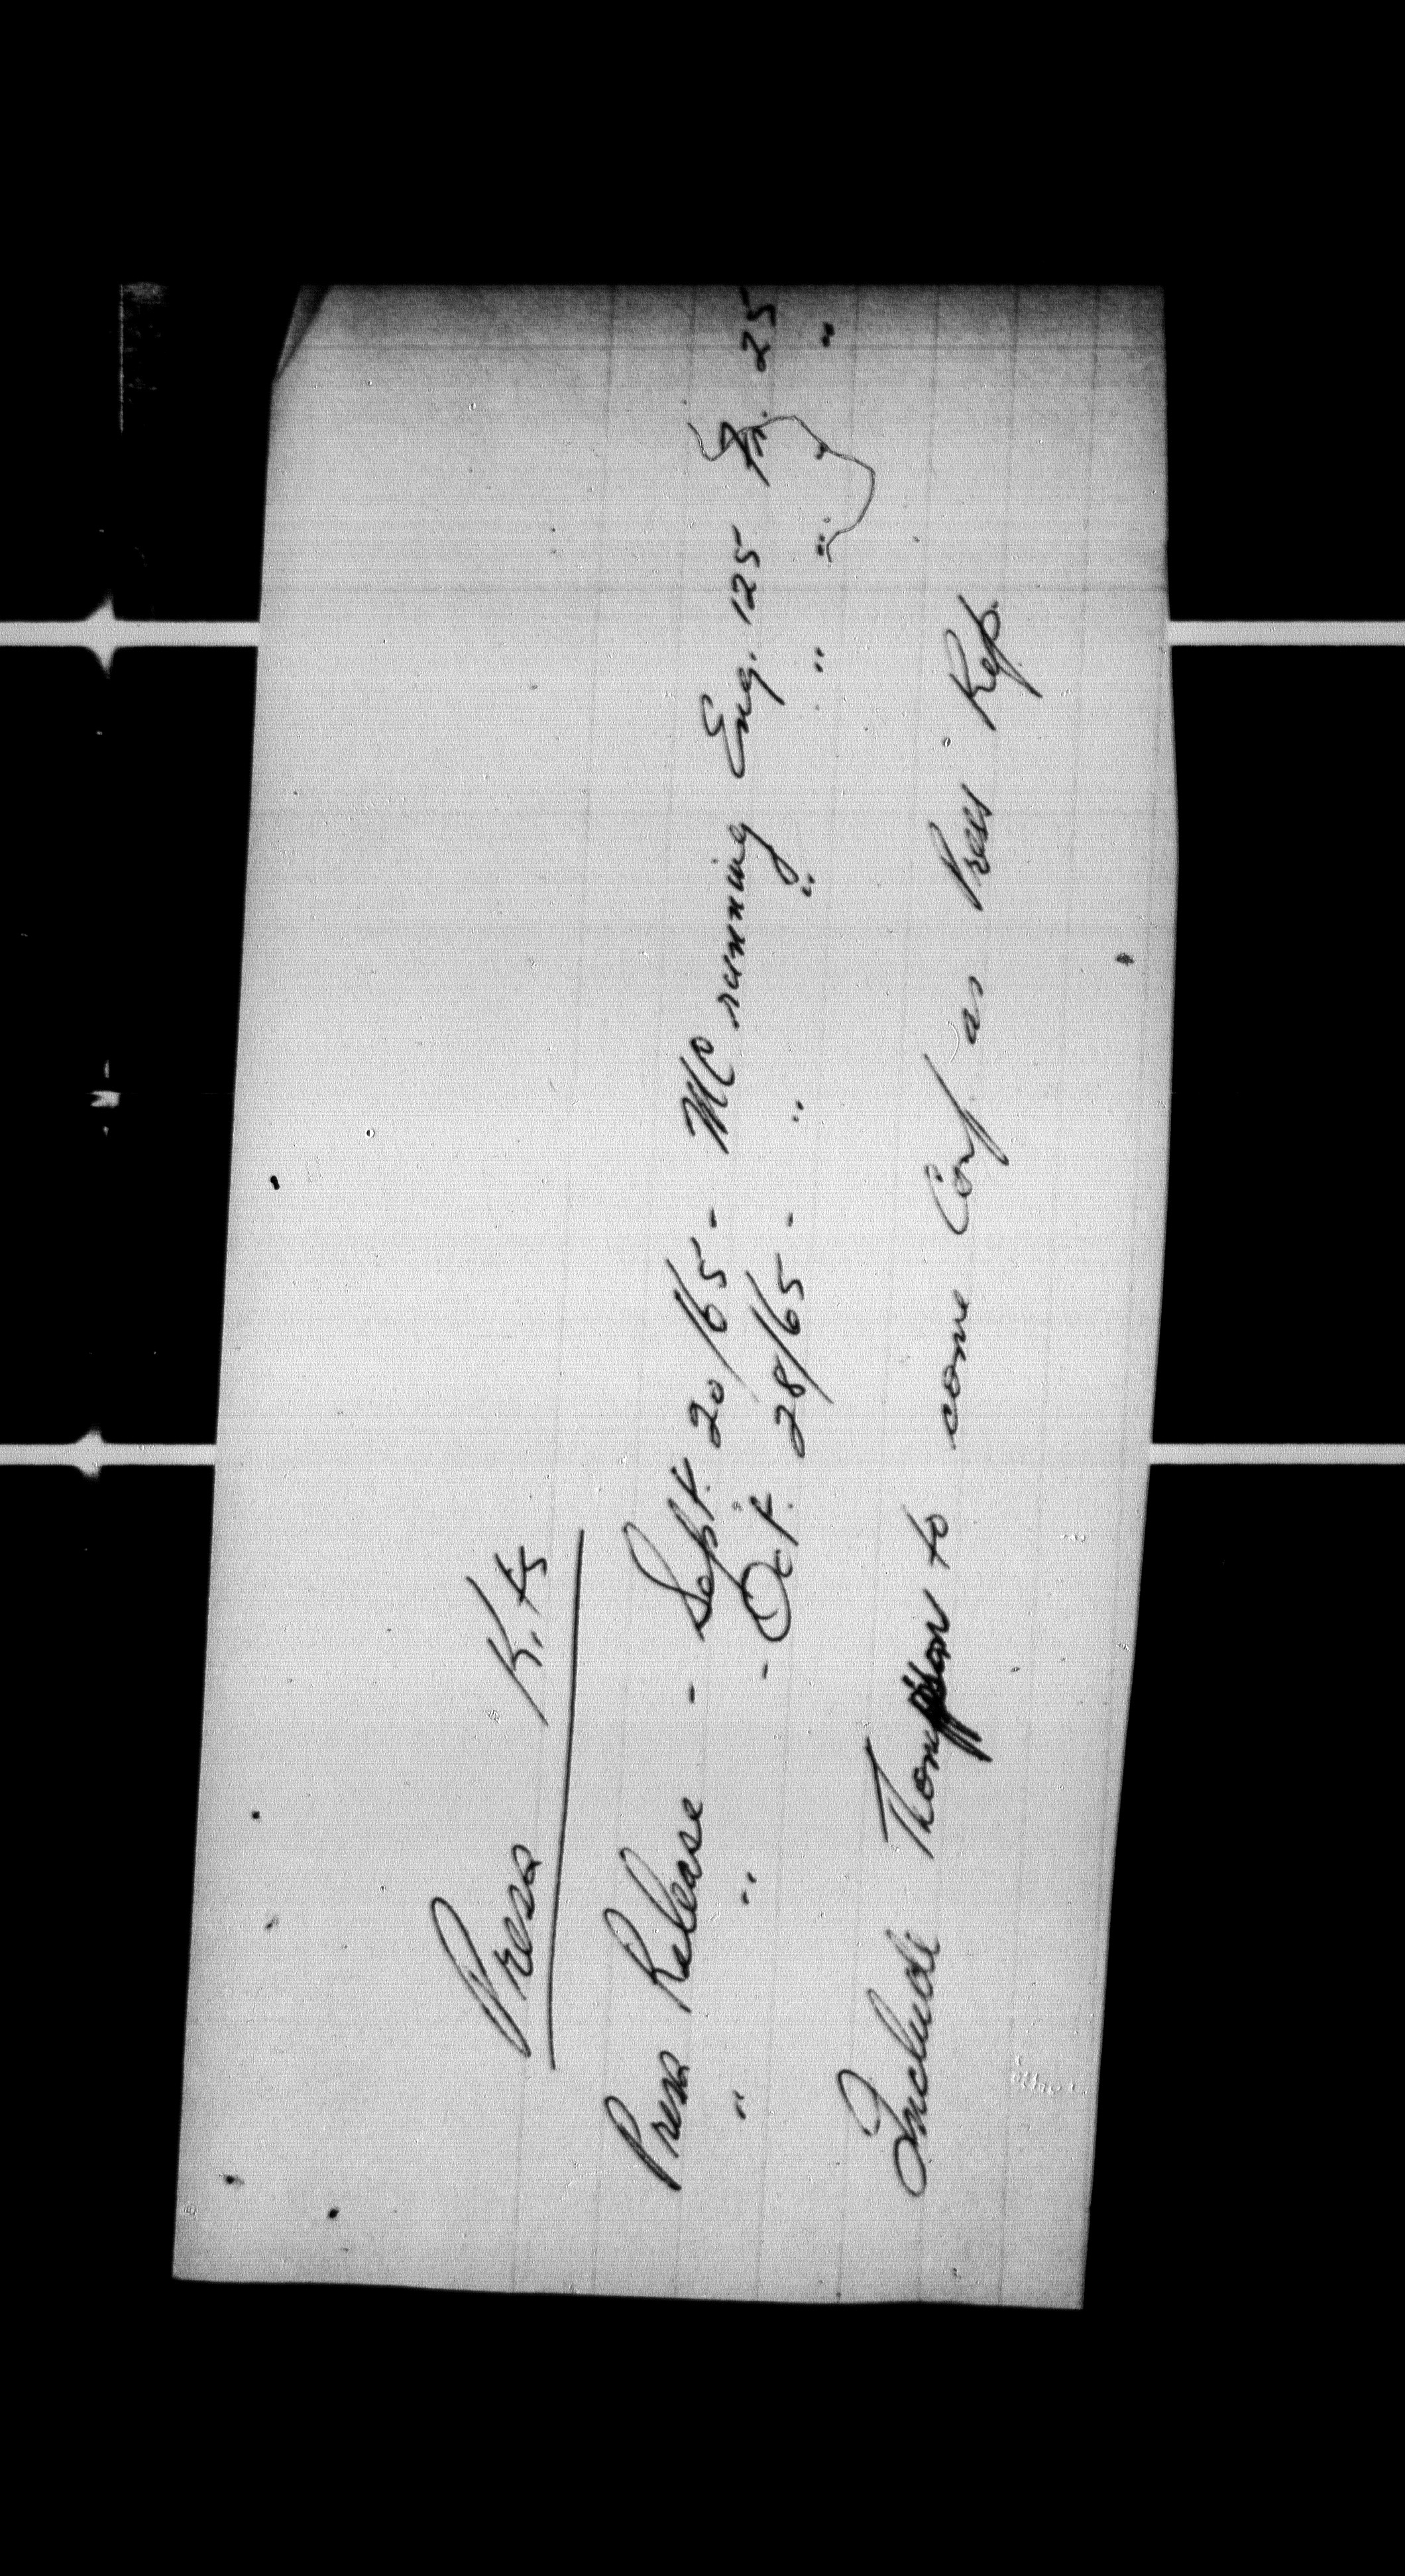 Press Kits
Press Release - Sept. 20/65 - MC running Eng. 125 Fr. 25
" " - Oct. 28/65 - " " " " " "
Include Thompson to come Conf as Press Rep.